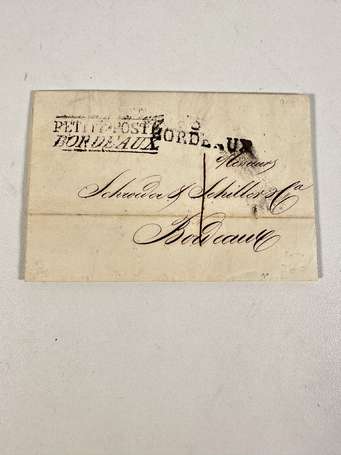 PETITE POSTE
BORDEAUX
BORDEAUX
Messieurs
Schröder & Schÿler & Ca
Bordeaux